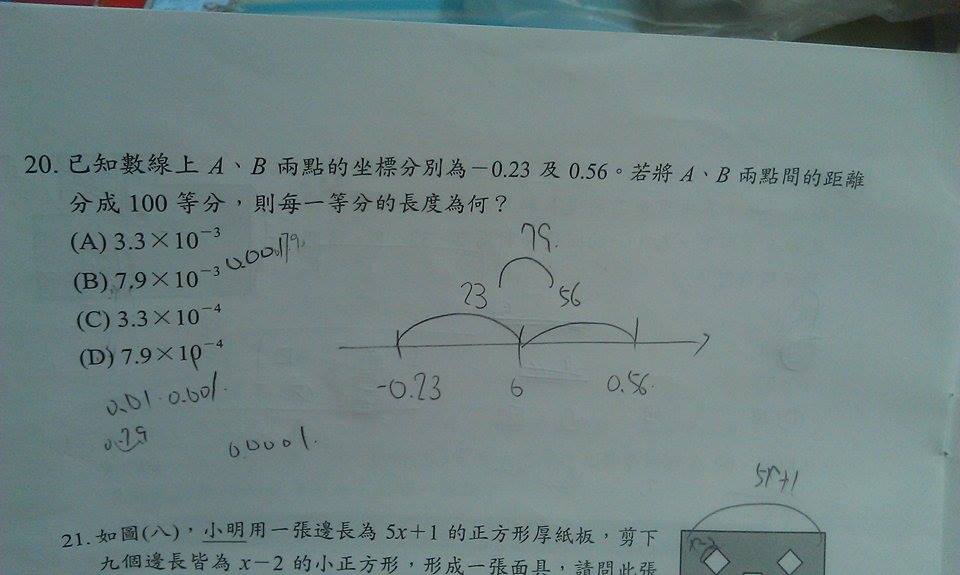 20. 已知數線上 A、B 兩點的坐標分別為－0.23 及 0.56。若將 A、B 兩點間的距離
分成 100 等分，則每一等分的長度為何？
(A) 3.3×10⁻³
(B) 7.9×10⁻³
(C) 3.3×10⁻⁴
(D) 7.9×10⁻⁴
79.
23 56
-0.23 0 0.56.
0.01. 0.001.
0.79
0.0001.
5x+1
21. 如圖(八)，小明用一張邊長為 5x＋1 的正方形厚紙板，剪下
x-2
九個邊長皆為 x－2 的小正方形，形成一張面具，請問此張